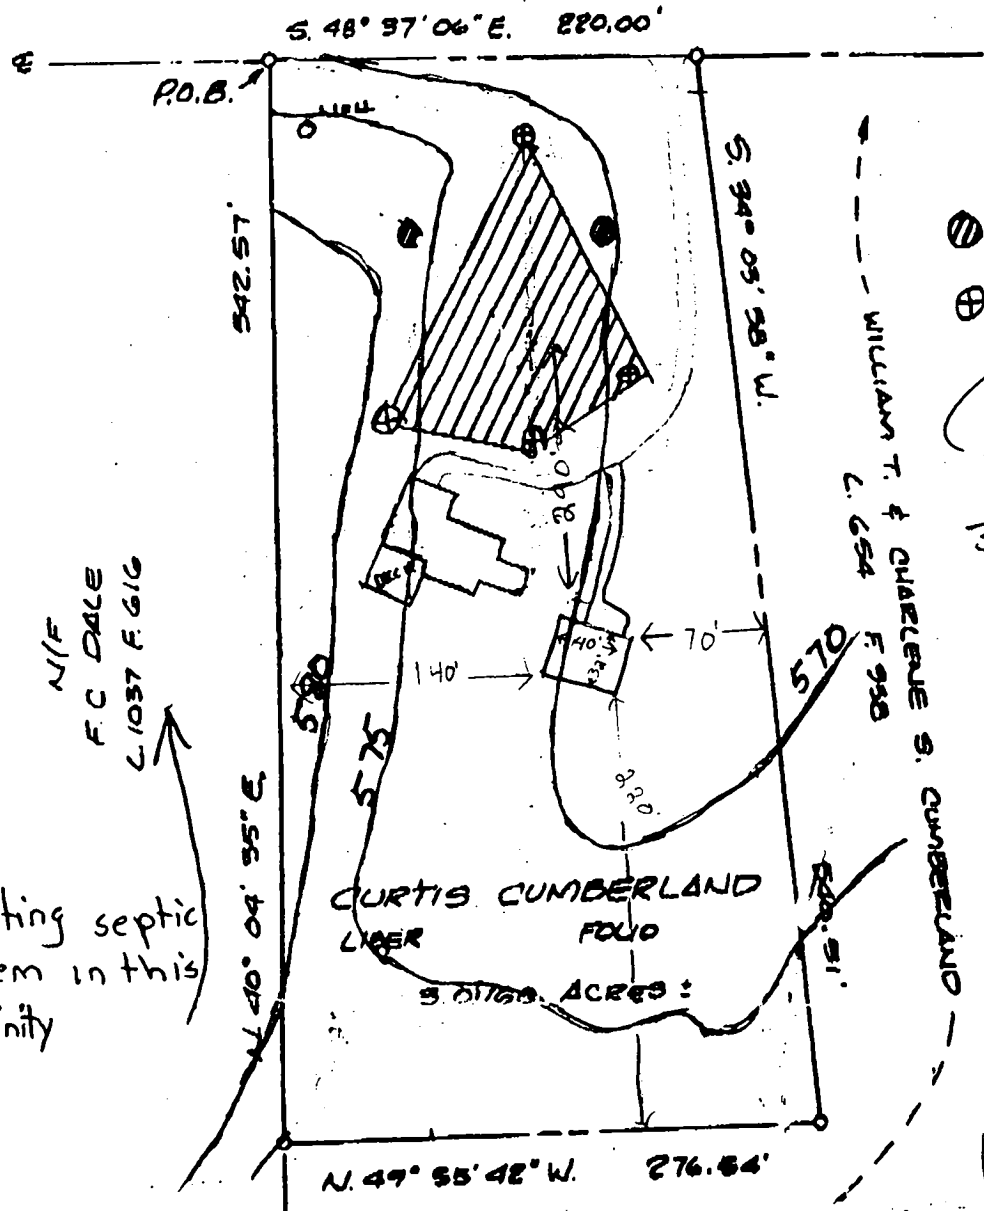 S. 48° 37' 06" E. 220.00'
P.O.B.
542.57'
S. 34° 03' 58" W.
WILLIAM T. & CHARLENE S. CUMBERLAND
L. 654 F. 938
N/F
F.C DALE
L.1037 F. 616
DECK
200'
40'
32'
70'
140'
570
580
575
220
N. 40° 04' 35" E.
CURTIS CUMBERLAND
LIBER FOLIO
ACRES ±
ting septic
em in this
nity
N. 49° 55' 42" W. 276.54'